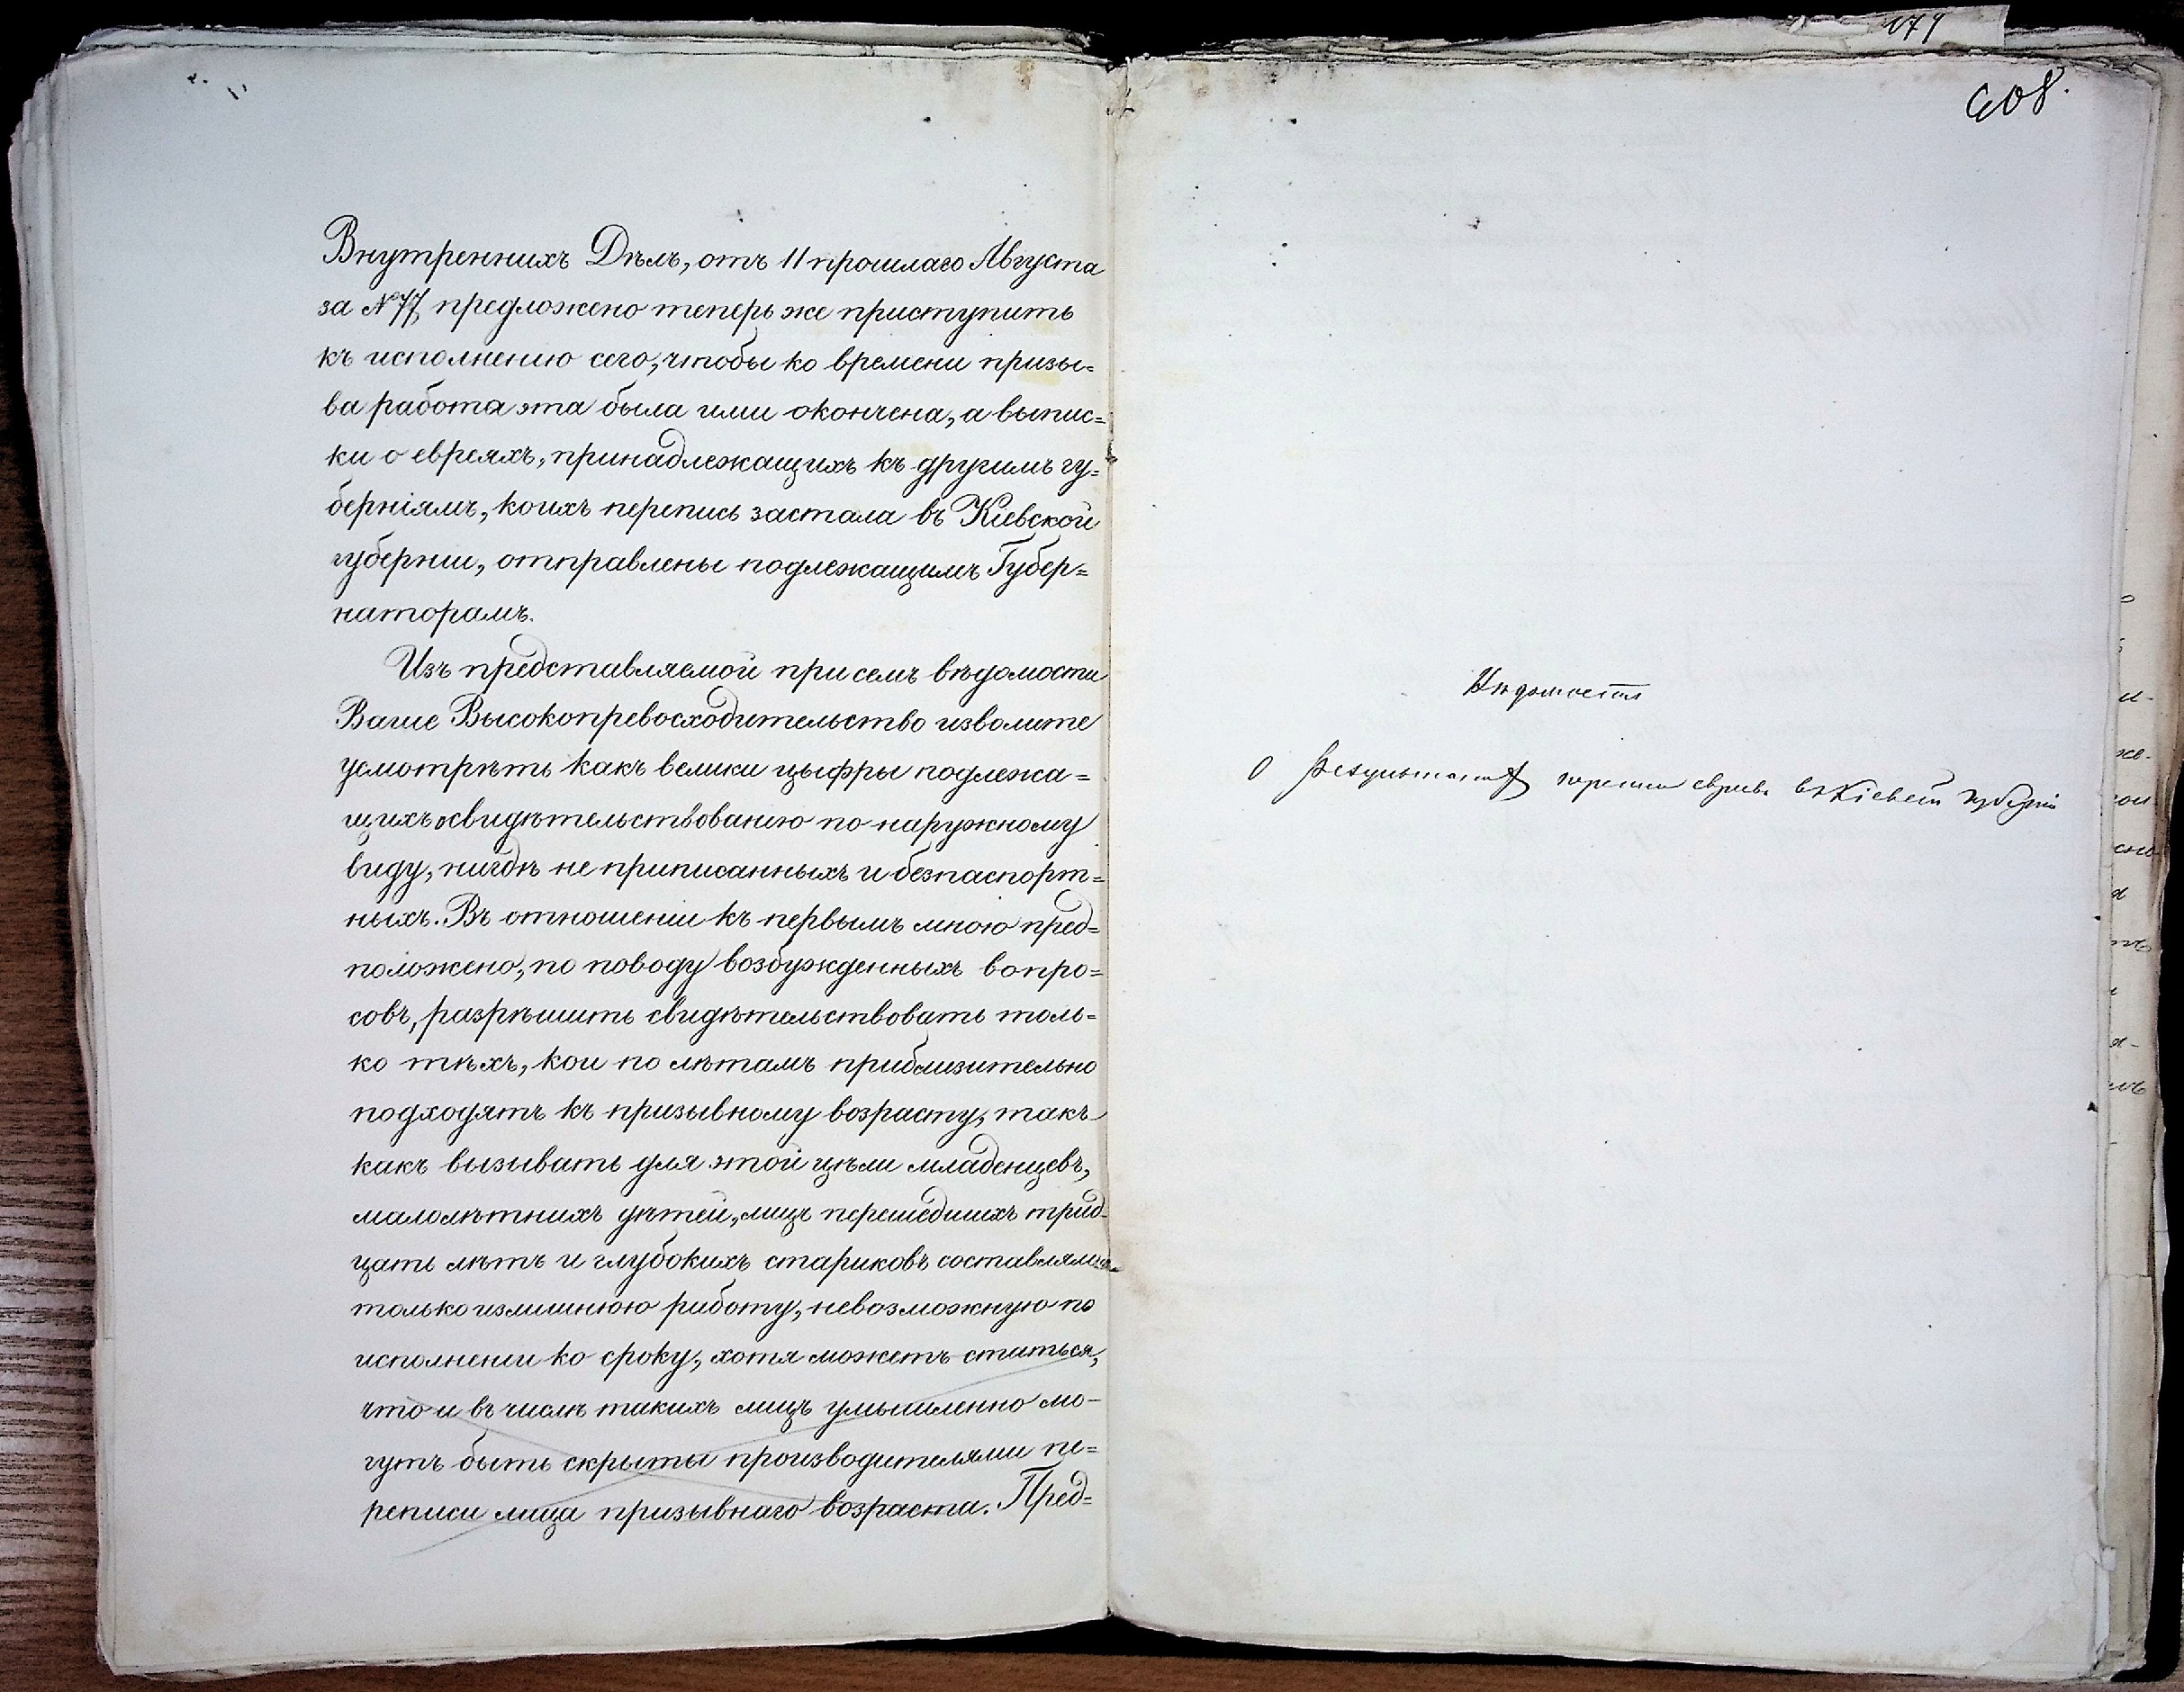 Внутреннихъ Дѣлъ, отъ 11 прошлаго Августа
за № 77, предложено теперь же приступить
къ исполнению сего, чтобы ко времени призы=
ва работа эта была ими окончена, а выпис=
ки о евреяхъ, принадлежащихъ къ другимъ гу=
берніямъ, коихъ перепись застала въ Кіевской
губерніи, отправлены подлежащимъ Губер=
наторамъ.
Изъ представляемой при семъ вѣдомости
Ваше Высокопревосходительство изволите
усмотрѣть какъ велики цыфры подлежа=
щихъ освидѣтельствованію по наружному
виду, нигдѣ не приписанныхъ и безпаспорт=
ныхъ. Въ отношеніи къ первымъ мною пред=
положено, по поводу возбужденныхъ вопро=
совъ, разрѣшить свидѣтельствовать толь=
ко тѣхъ, кои по лѣтамъ приблизительно
подходятъ къ призывному возрасту, такъ
какъ вызывать для этой цѣли младенцевъ,
малолѣтнихъ дѣтей, лицъ перешедшихъ трид-
цать лѣтъ и глубокихъ стариковъ
только излишнюю работу, невозможную по
исполненіи ко сроку, хотя можетъ статься,
что и въ числѣ такихъ лицъ умышленно мо-
гутъ быть скрыты производителями пе=
реписи лица призывнаго возраста. Пред=
608.
Вѣдомость
о результатѣ переписи евреевъ въ Кіевской губерніи